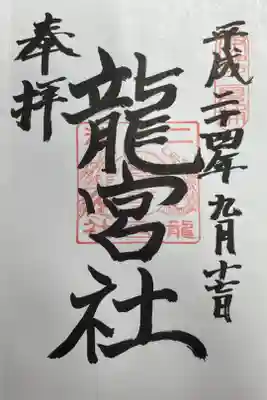 平成二十四年九月十七日
龍宮社
奉拝